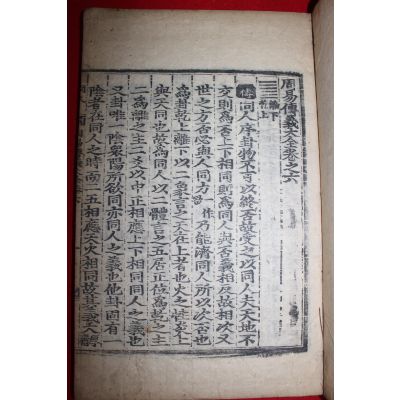 周易傳義大全卷之六
離下
乾上
傳同人序卦物不可以終否故受之以同人夫天地不
交則爲否上下相同則爲同人與否義相反故相次又
世之方否必與人同力乃能濟同人所以次否也
爲卦乾上離下以二象言之天在上者也火之性炎上
與天同也故爲同人以二體言之五居正位爲乾之主
二爲離之主二爻以中正相應上下相同同人之義也
又卦唯一陰衆陽所欲同亦同人之義也他卦固有一
陰者在同人之時而二五相應天火相同故其義大